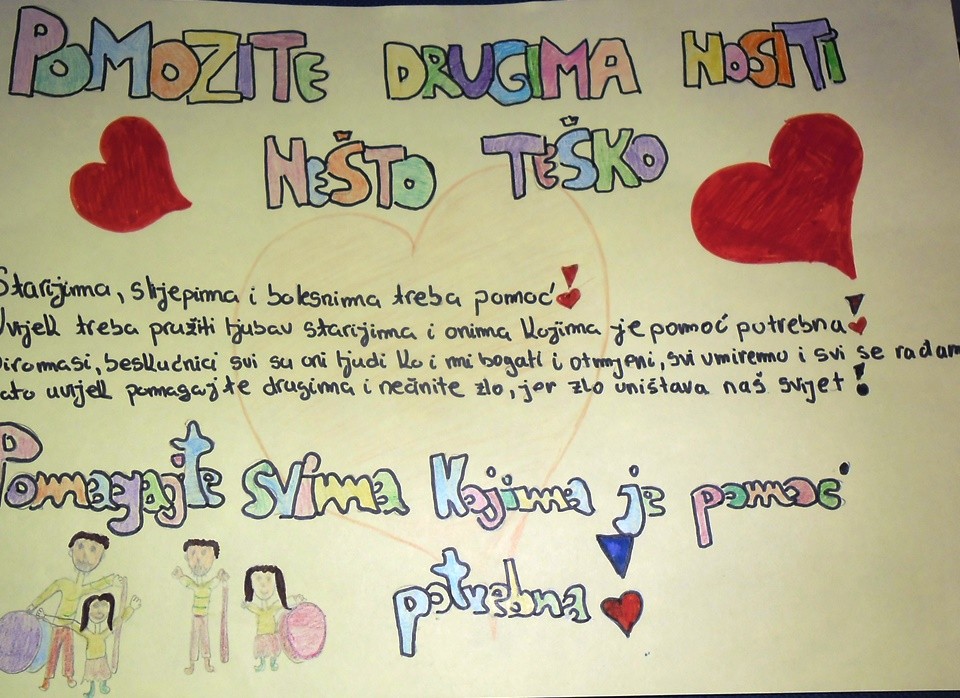 POMOZITE DRUGIMA NOSITI
NEŠTO TEŠKO
Starijima, slijepima i bolesnima treba pomoć!
Uvijek treba pružiti ljubav starijima i onima kojima je pomoć potrebna!
siromasi, beskućnici svi su oni ljudi ko i mi bogati i otmjeni, svi umiremo i svi se rađam
zato uvijek pomagajte drugima i nečinite zlo, jer zlo uništava naš svijet!
Pomagajte svima kojima je pomoć
potrebna!